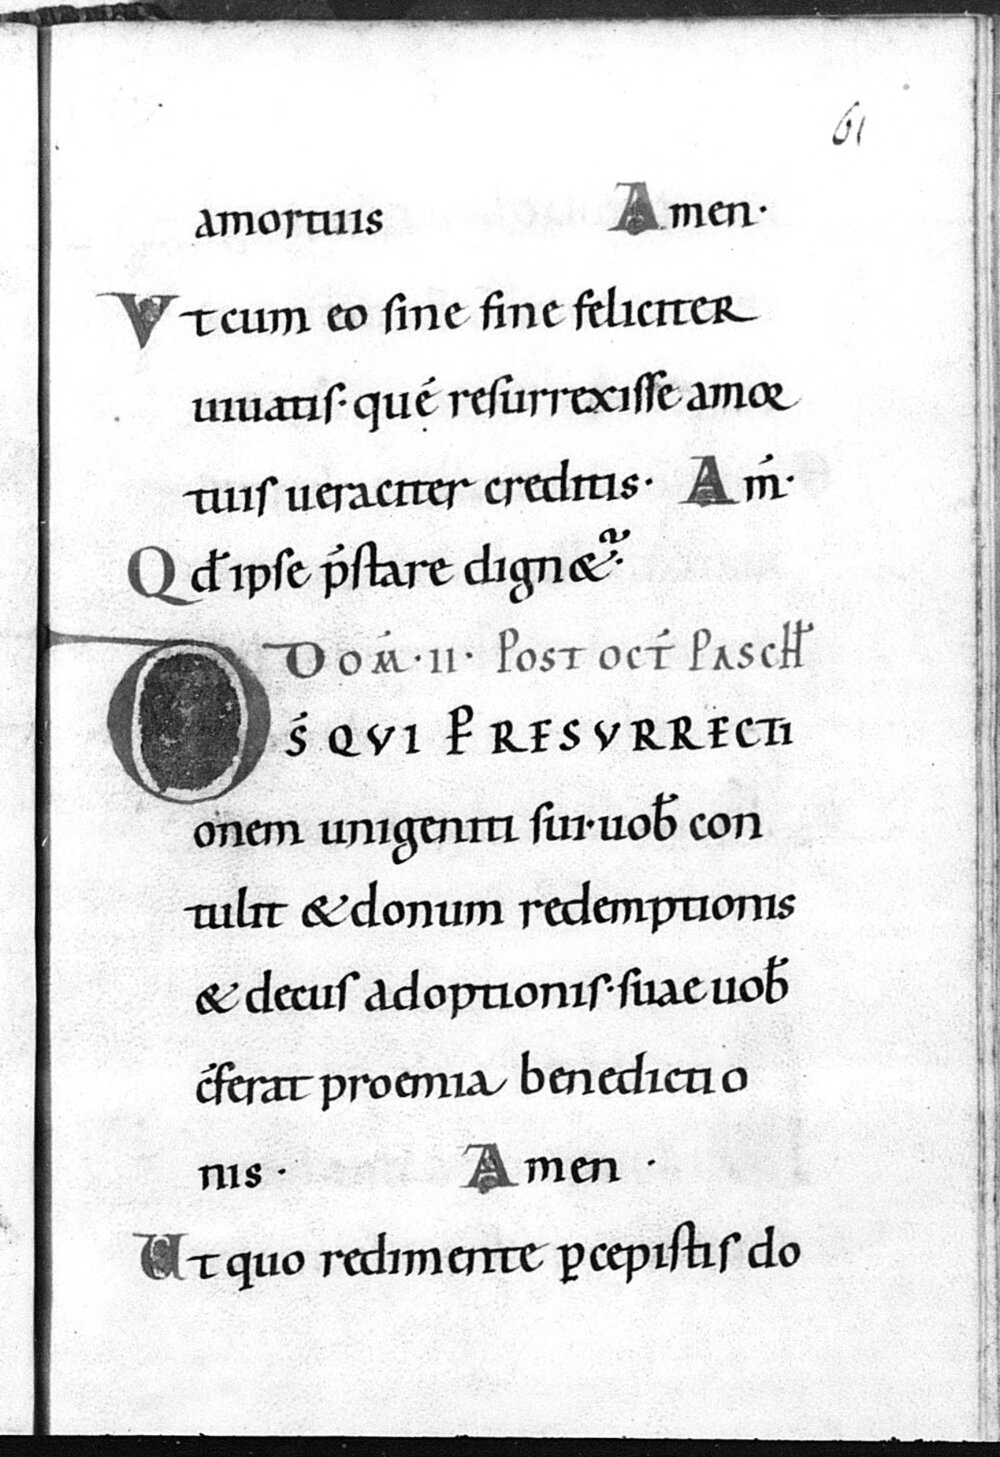 61
amortuis Amen·
Vt cum eo sine fine feliciter
uiuatis· qué resurrexisse amor
tuis ueraciter creditis· Am̄·
Qđ ipse p̄stare dignet᷑·
DOM̄·II· POST OCT̄ PASCH̄
DS̄ QVI P̱ RESVRRECTI
onem unigeniti sui· uob̄ con
tulit & donum redemptionis
& decus adoptionis· suae uob̄
c̄ferat proemia benedictio
nis· Amen·
Ut quo redimente ꝑcepistis do